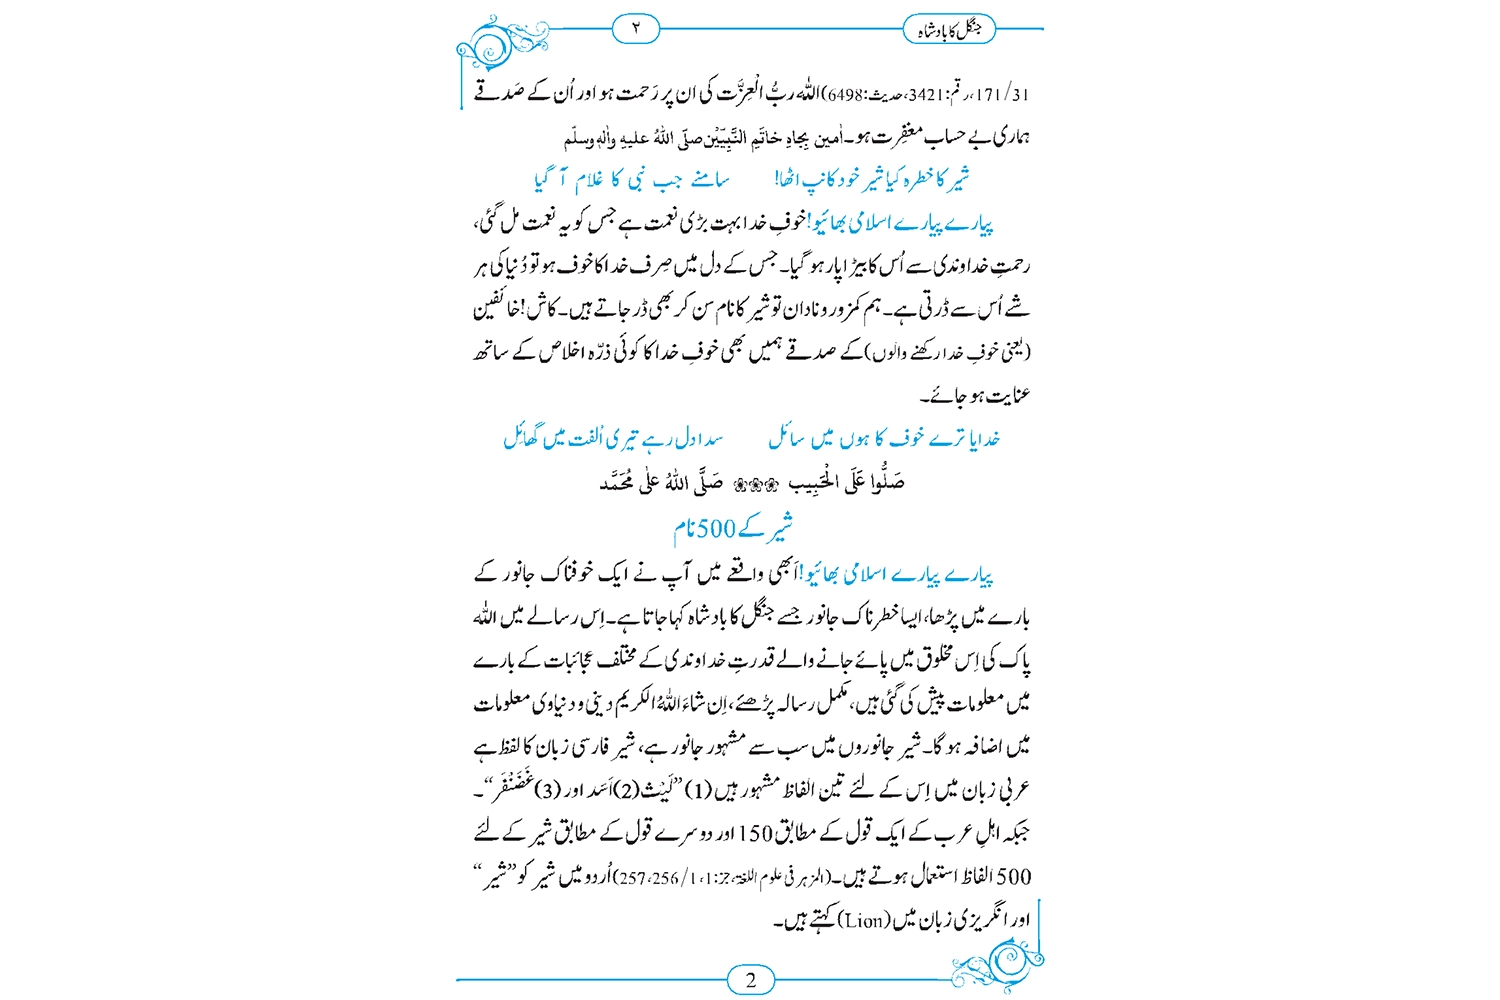 جنگل کا بادشاہ
۲
31/171،رقم:3421،حدیث:6498)اللہ ربُّ الْعِزَّت کی ان پر رَحمت ہو اور اُن کے صَدقے
ہماری بے حساب مغفِرت ہو۔اٰمین بِجاہِ خاتَمِ النَّبِیّیْن صلّی اللہُ علیہِ واٰلہٖ وسلّم
شیر کا خطرہ کیا شیر خود کانپ اٹھا! سامنے جب نبی کا غلام آ گیا
پیارے پیارے اسلامی بھائیو!خوفِ خدا بہت بڑی نعمت ہے جس کو یہ نعمت مل گئی،
رحمتِ خداوندی سے اُس کا بیڑا پار ہو گیا۔ جس کے دل میں صِرف خدا کا خوف ہو تو دُنیا کی ہر
شے اُس سے ڈرتی ہے۔ ہم کمزور و نادان تو شیر کا نام سن کر بھی ڈر جاتے ہیں۔ کاش! خائفین
(یعنی خوفِ خدا رکھنے والوں) کے صدقے ہمیں بھی خوفِ خدا کا کوئی ذرّہ اخلاص کے ساتھ
عنایت ہو جائے۔
خدایا ترے خوف کا ہوں میں سائل سدا دل رہے تیری اُلفت میں گھائِل
صَلُّوا عَلَی الْحَبِیب ❀❀❀ صَلَّی اللہُ علٰی مُحَمَّد
شیر کے 500 نام
پیارے پیارے اسلامی بھائیو!اَبھی واقعے میں آپ نے ایک خوفناک جانور کے
بارے میں پڑھا، ایسا خطرناک جانور جسے جنگل کا بادشاہ کہا جاتا ہے۔ اِس رسالے میں اللہ
پاک کی اِس مخلوق میں پائے جانے والے قدرتِ خداوندی کے مختلف عجائبات کے بارے
میں معلومات پیش کی گئی ہیں، مکمل رسالہ پڑھئے، اِن شاءَ اللہُ الکریم دینی و دنیاوی معلومات
میں اضافہ ہو گا۔ شیر جانوروں میں سب سے مشہور جانور ہے، شیر فارسی زبان کا لفظ ہے
عربی زبان میں اِس کے لئے تین الفاظ مشہور ہیں (1) ”لَیْث(2)اَسَد اور (3)غَضَنْفَر“۔
جبکہ اہلِ عرب کے ایک قول کے مطابق 150 اور دوسرے قول کے مطابق شیر کے لئے
500 الفاظ استعمال ہوتے ہیں۔(المزہر فی علوم اللغۃ،جز:1، 1/256،257)اُردو میں شیر کو ”شیر“
اور انگریزی زبان میں (Lion) کہتے ہیں۔
2